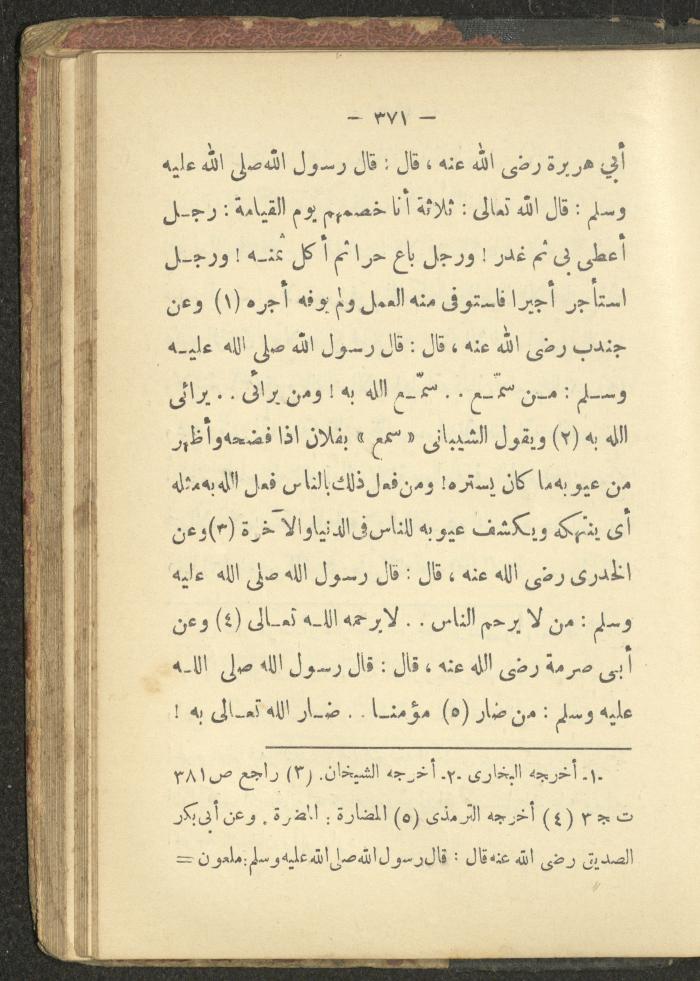 — ٣٧١ —
أبي هريرة رضى الله عنه ، قال : قال رسول الله صلى الله عليه
وسلم : قال الله تعالى : ثلاثة أنا خصمهم يوم القيامة : رجـل
أعطى بى ثم غدر ! ورجل باع حرا ثم أكل ثمنـه ! ورجـل
استأجر أجيرا فاستوفى منه العمل ولم يوفه أجره (١) وعن
جندب رضى الله عنه ، قال : قال رسول الله صلى الله عليـه
وسـلم : مـن سمّـع . . سمّـع الله به ! ومن يرائى . . يرائى
الله به (٢) ويقول الشيبانى « سمع » بفلان اذا فضحه وأظهر
من عيوبه ما كان يستره ! ومن فعل ذلك بالناس فعل الله به مثله
أى ينتهكه ويكشف عيوبه للناس فى الدنيا والآخرة (٣) وعن
الخدرى رضى الله عنه ، قال : قال رسول الله صلى الله عليه
وسلم : من لا يرحم الناس . . لا يرحمه اللـه تعـالى (٤) وعن
أبـى صرمة رضى الله عنه ، قال : قال رسول الله صلى اللـه
عليه وسلم : من ضار (٥) مؤمنـا . . ضـار الله تعـالى به !
١- أخرجه البخارى ٢- أخرجه الشيخان . (٣) راجع ص ٣٨١
ت ج ٣ (٤) أخرجه الترمذى (٥) المضارة : المضرة . وعن أبى بكر
الصديق رضى الله عنه قال : قال رسول الله صلى الله عليه وسلم : ملعون =